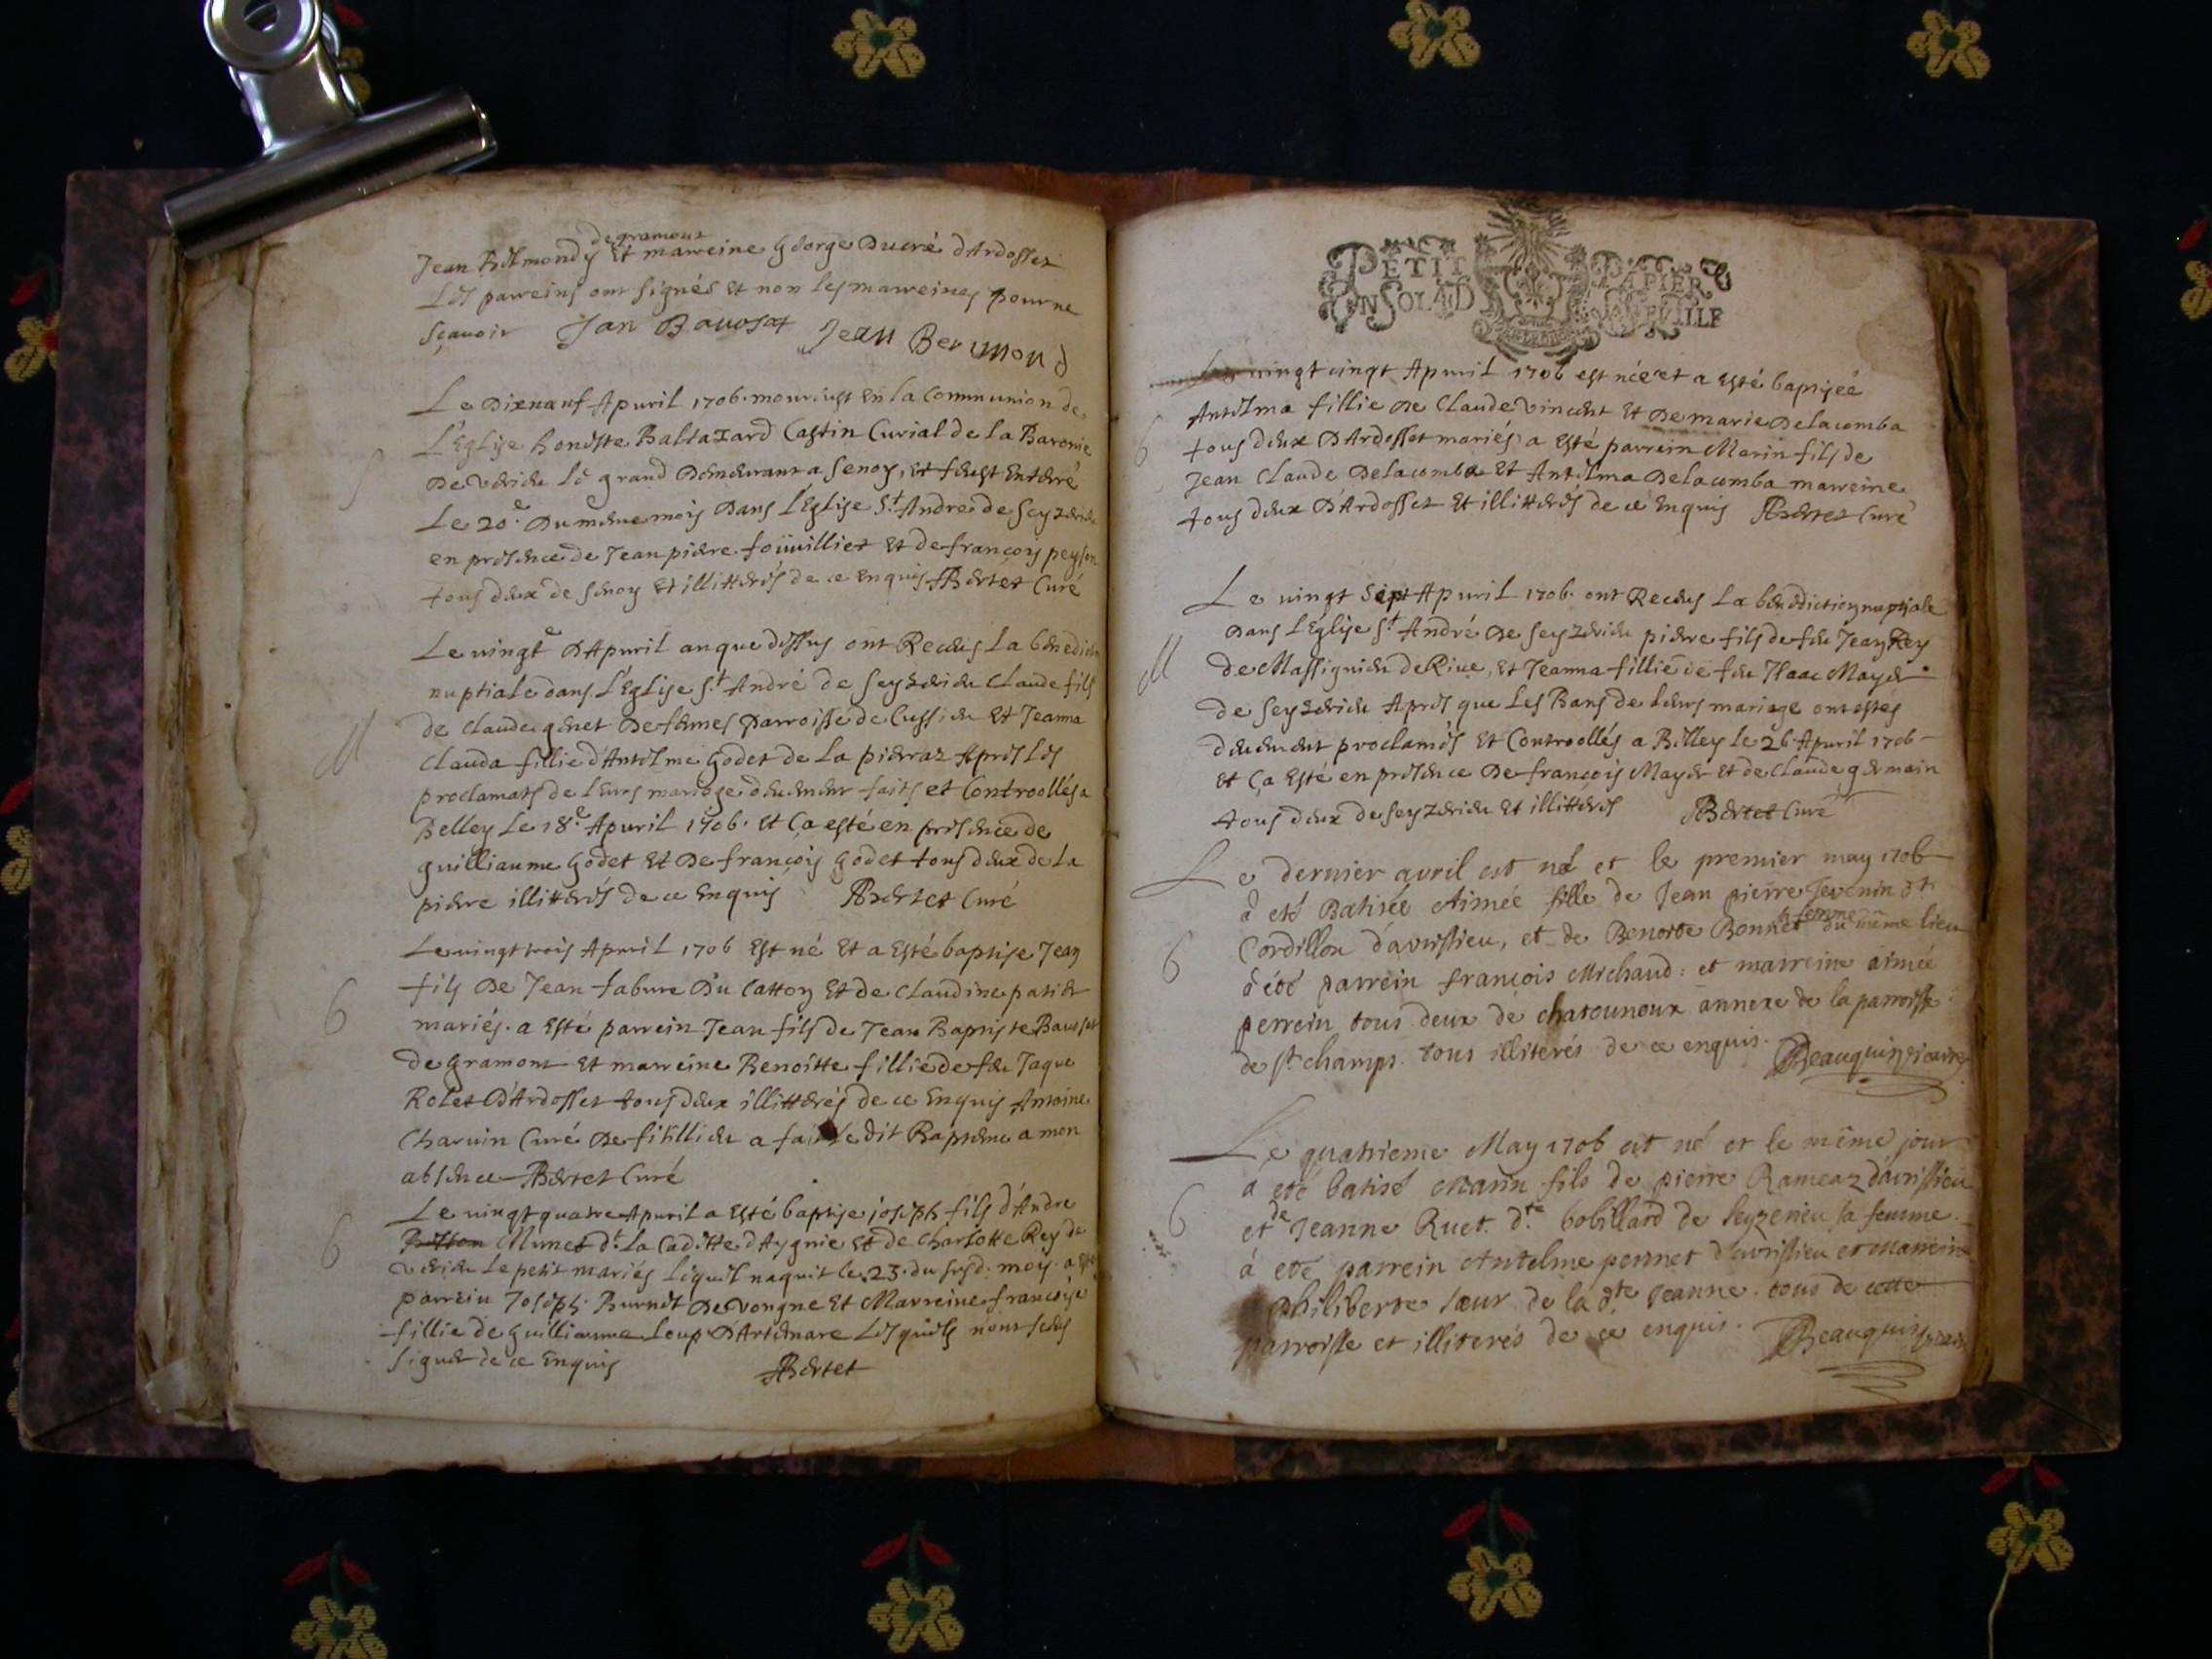 degramont
Jean Bermondy et marreine George Ducré dArdosset
Les parreins ont signés et non les marreines pour ne
sçavoir Jan Bavoset Jean Bermond
Le Dixnauf Apuril 1706 mourust en la Communion de
L'Eglise honeste Baltazard Castin Curial de la Baronie
De virieu le grand Demeurant a senoy, et feust enterré
Le 20e. Du mesme mois Dans l'Eglise St. André de Seyzerieu
en presence de Jean piere foüuilliet et de françois peyson
tous deux de senoy et illitterés de ce enquis Bertet Curé
S
Le vingte D'Apuril an que dessus ont Receus la benediction
nuptiale dans l'Eglise St. André de Seyzerieu Claude fils
de Claude genet De Parroisse de Cussieu et Jeanna
Clauda fillie d'Antelme Godet de la pierraz Apres les
proclamats de leurs mariage deuement faits et Controollés a
Belley Le 18e. Apuril 1706. et ça esté en presence de
guilliaume Godet et De françois Godet tous deux de la
piere illitterés de ce enquis Bertet Curé
M
Le vingt trois Apuril 1706 est né et a esté baptise Jean
fils De Jean fabure Du Catton et de Claudine patier
mariés. a esté parrein Jean fils de Jean Baptiste Bavoset
de Gramont et marreine Benoitte fillie de feu Jaque
Rolet D'Ardosset tous deux illitterés de ce enquis Antoine
Charvin Curé De fitillieu a fait le dit Baptesme a mon
absence Bertet Curé
6
Le vingt quatre Apuril a esté baptise joseph fils d'André
Munet dt. La Caditte d'Aygnie et de Charlotte Rey de
virieu le petit mariés lequel naquit le 23. du susd. moys. a esté
parrein Joseph Burnet De vongne et Marreine françoise
fillie de guilliaume Loup D'Artemare lesquels n'ont sceus
signer de ce enquis Bertet
6
PETIT PAPIER
UN SOL LA D
vingt cinqt Apuril 1706 est née et a esté baptiseé
Antelma fillie De Claude vincent et De marie Delacomba
tous deux D'Ardosset mariés, a esté parrein Marin fils de
Jean Claude Delacomba et Antelma Delacomba marreine
tous deux D'Ardosset et illitterés de ce enquis Bertet Curé
6
Le vingt Sept Apuril 1706. ont Receus la benediction nuptiale
Dans L'Eglise St. André De Seyzerieu piere fils de feu Jean Rey
de Massignieu de Rive, et Jeanna fillie de feu Isaac Mayer
de Seyzerieu Apres que les Bans de leurs mariage ont estés
deuement proclamés et Controollés a Belley le 26 Apuril 1706
et ça esté en presence De françois Mayer et de Claude germain
tous deux de Seyzerieu et illitterés Bertet Curé
M
Le dernier avril est né et le premier may 1706
a eté Batisée Aimée fille de Jean pierre Jevenin dt.
Cordillon d'avrissieu, et de Benoite Bonnet sa femme du même lieu
à été parrein françois Michaud: et marreine aimée
perrein tous deux de chatounoux annexe de la parroisse
de st champs. tous illiterés de ce enquis. Beauquis vicaire
6
Le quatrieme May 1706 est né et le même jour
a eté batisé Marin fils de pierre Rameaz d'avrissieu
et de Jeanne Ruet dte. bobillard de seyzerieu sa femme.
à eté parrein Antelme pernet d'avrissieu et Marreine
philiberte sœur de la dte jeanne. tous de cette
parroisse et illiterés de ce enquis. Beauquis vicaire
6